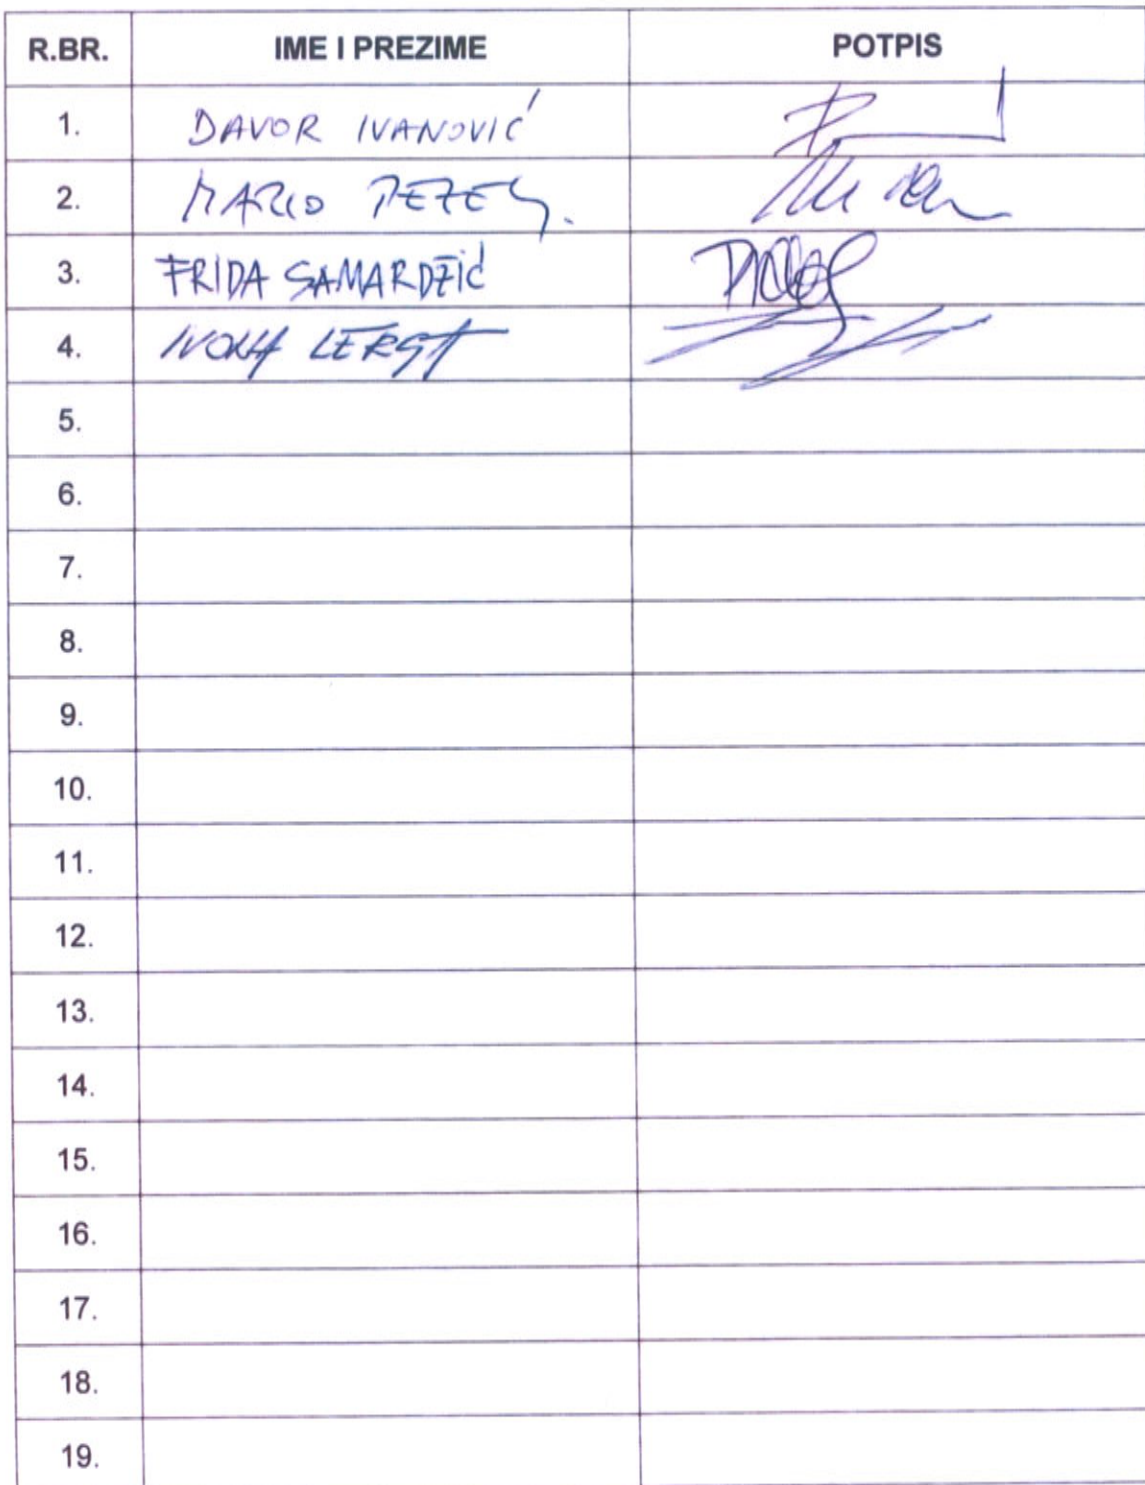 R.BR. IME I PREZIME POTPIS
1. DAVOR IVANOVIĆ
2. MARIO
3. FRIDA SAMARDŽIĆ
4. IVONA LERGA
5.
6.
7.
8.
9.
10.
11.
12.
13.
14.
15.
16.
17.
18.
19.